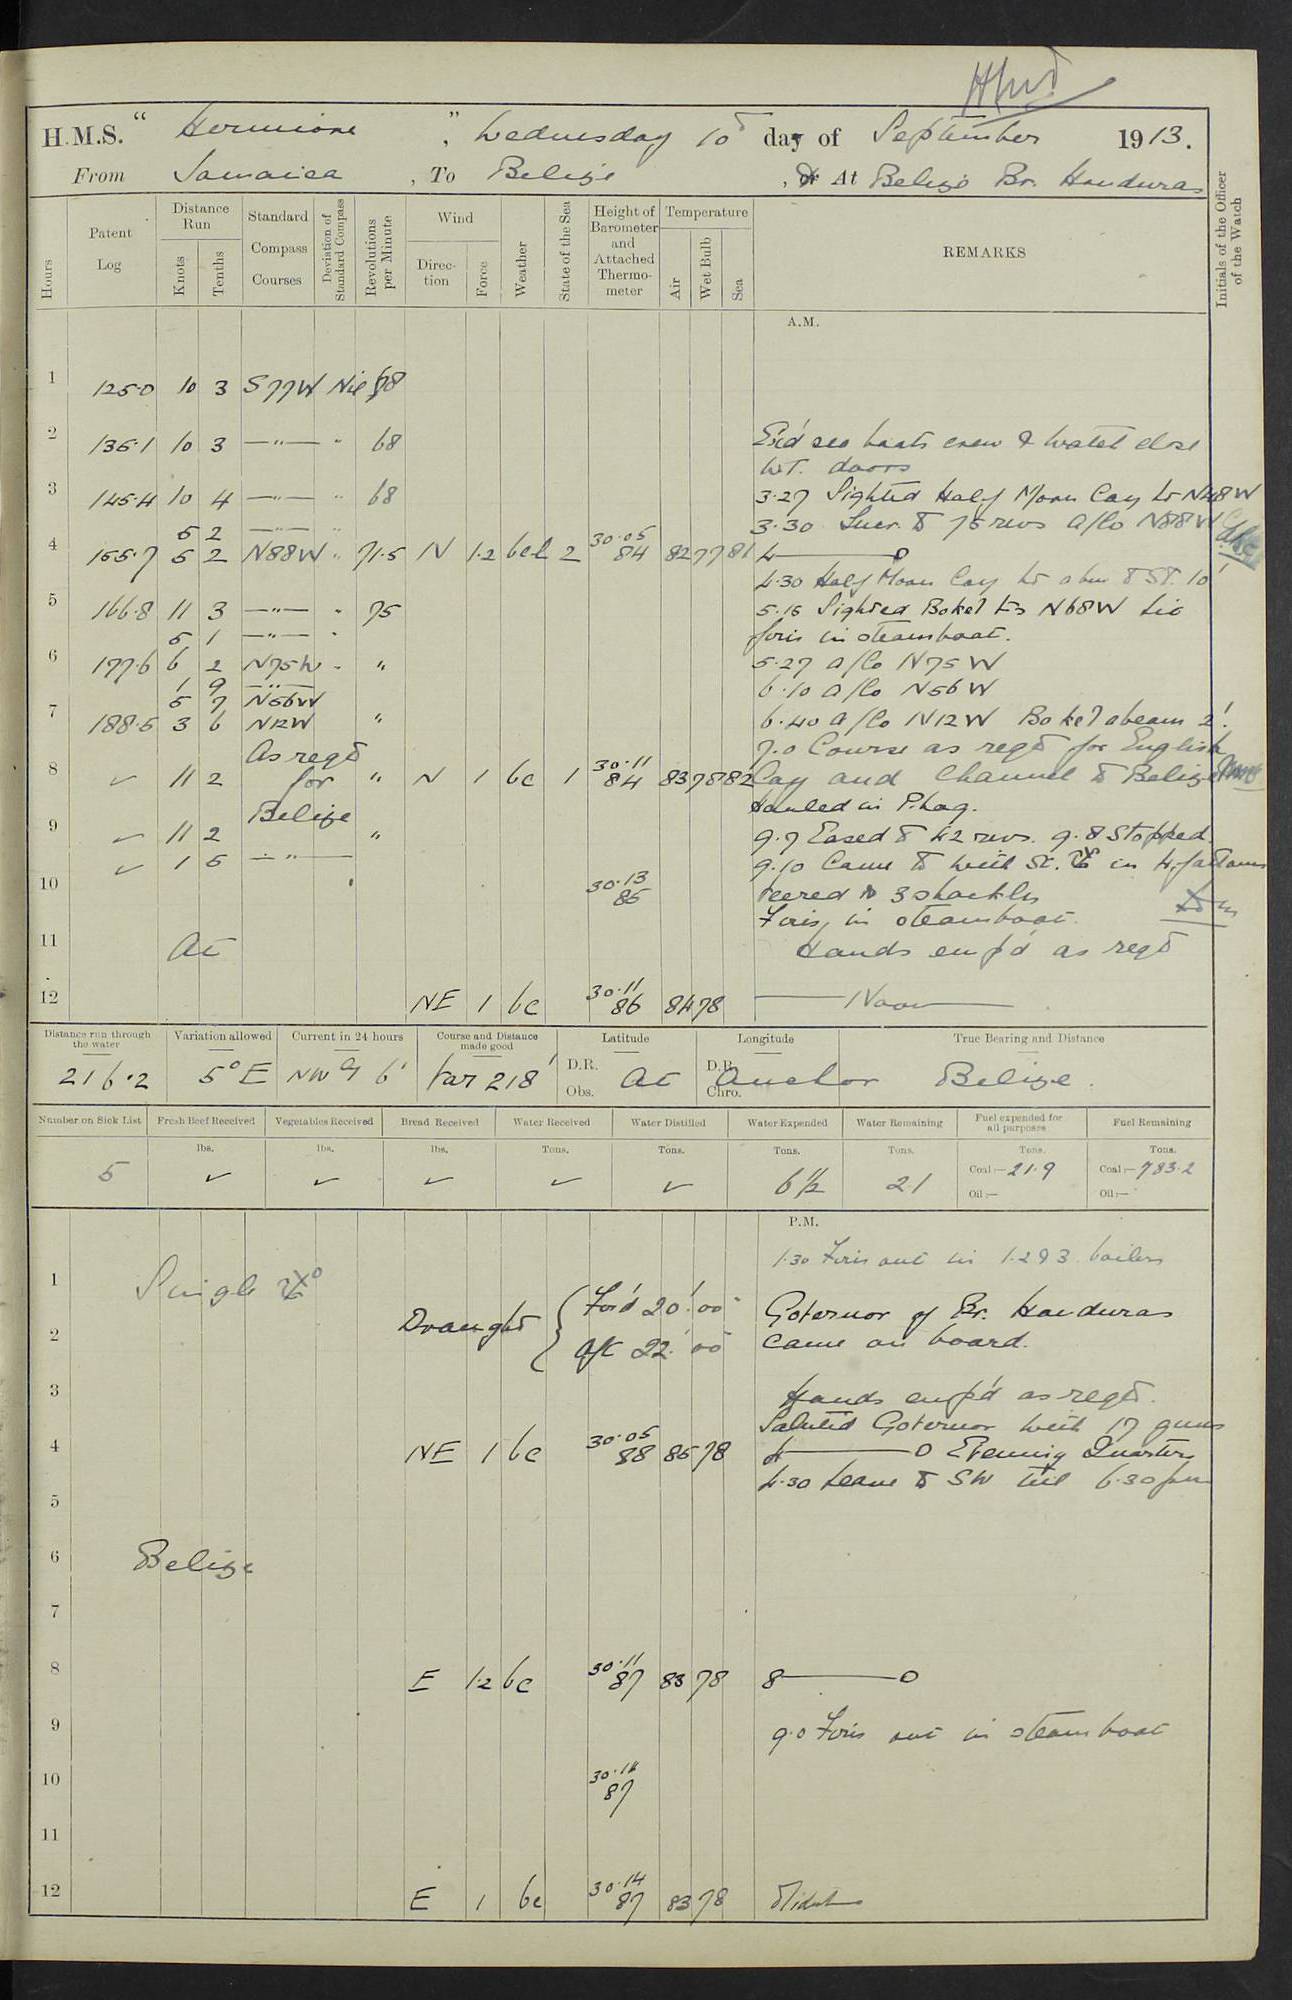 H.M.S. " Hermione ", Wednesday 10th day of September 1913.
From Jamaica, To Belize, or At Belize Br. Honduras
Hours
Patent Log
Distance Run
Knots
Tenths
Standard Compass Courses
Deviation of Standard Compass
Revolutions per Minute
Wind
Direction
Force
Weather
State of the Sea
Height of Barometer and Attached Thermometer
Temperature
Air
Wet Bulb
Sea
REMARKS
Initials of the Officer of the Watch
A.M.
1 125.0 10 3 S77W Nil 68
2 135.1 10 3 —"— " 68 Ex'd sea boats crew & watet close
W.T. doors
3 145.4 10 4 —"— " 68 3.27 Sighted Half Moon Cay Lt N48W
5 2 —"— " 3.30 Incr. to 75 revs a/Co N88W
4 155.7 5 2 N88W " 71.5 N 1.2 bcl 2 30.05 84 82 77 81 4———0
4.30 Half Moon Cay Lt abm to ST. 10'
5 166.8 11 3 —"— " 75 5.15 Sighted Bokel Lts N68W Lit
5 1 —"— " fires in steamboat.
6 177.6 6 2 N75W " " 5.27 a/Co N75W
1 9 —"— 6.10 a/Co N56W
5 7 N56W
7 188.5 3 6 N12W " 6.40 a/Co N12W Bokel abeam 2'.
As reqd 7.0 Course as reqd for English
8 ✓ 11 2 for " N 1 bc 1 30.11 84 83 78 82 Cay and Channel to Belize
Belize Hauled in P.Log.
9 ✓ 11 2 " 9.7 Eased to 42 revs. 9.8 Stopped.
✓ 1 5 —"— 9.10 Came to with St. in 4 fathoms
10 30.13 85 veered to 3 shackles
Fires in steamboat.
11 At Hands emp'd as reqd
12 NE 1 bc 30.11 86 84 78 ——Noon——
Distance run through the water
Variation allowed
Current in 24 hours
Course and Distance made good
Latitude
Longitude
True Bearing and Distance
216.2 5°E NW 6' Var 218' D.R. Obs. At D.R. Chro. Anchor Belize.
Number on Sick List
Fresh Beef Received
Vegetables Received
Bread Received
Water Received
Water Distilled
Water Expended
Water Remaining
Fuel expended for all purposes
Fuel Remaining
lbs. lbs. lbs. Tons. Tons. Tons. Tons. Tons. Tons.
5 ✓ ✓ ✓ ✓ ✓ 6½ 21 Coal:—21.9 Coal:—783.2
Oil:— Oil:—
P.M.
1.30 Fires out in 1.2&3 boilers
1 Single
Draught { For'd 20'.00" Governor of Br. Honduras
2 Aft 22'.00" came on board.
3 Hands emp'd as reqd.
Saluted Governor with 17 guns
4 NE 1 bc 30.05 88 85 78 4———0 Evening Quarters
4.30 Leave to SW till 6.30 pm
5
6 Belize
7
8 E 1.2 bc 30.11 87 83 78 8———0
9 9.0 Fires out in steamboat
10 87
11
12 E 1 bc 30.14 87 83 78 Midnt